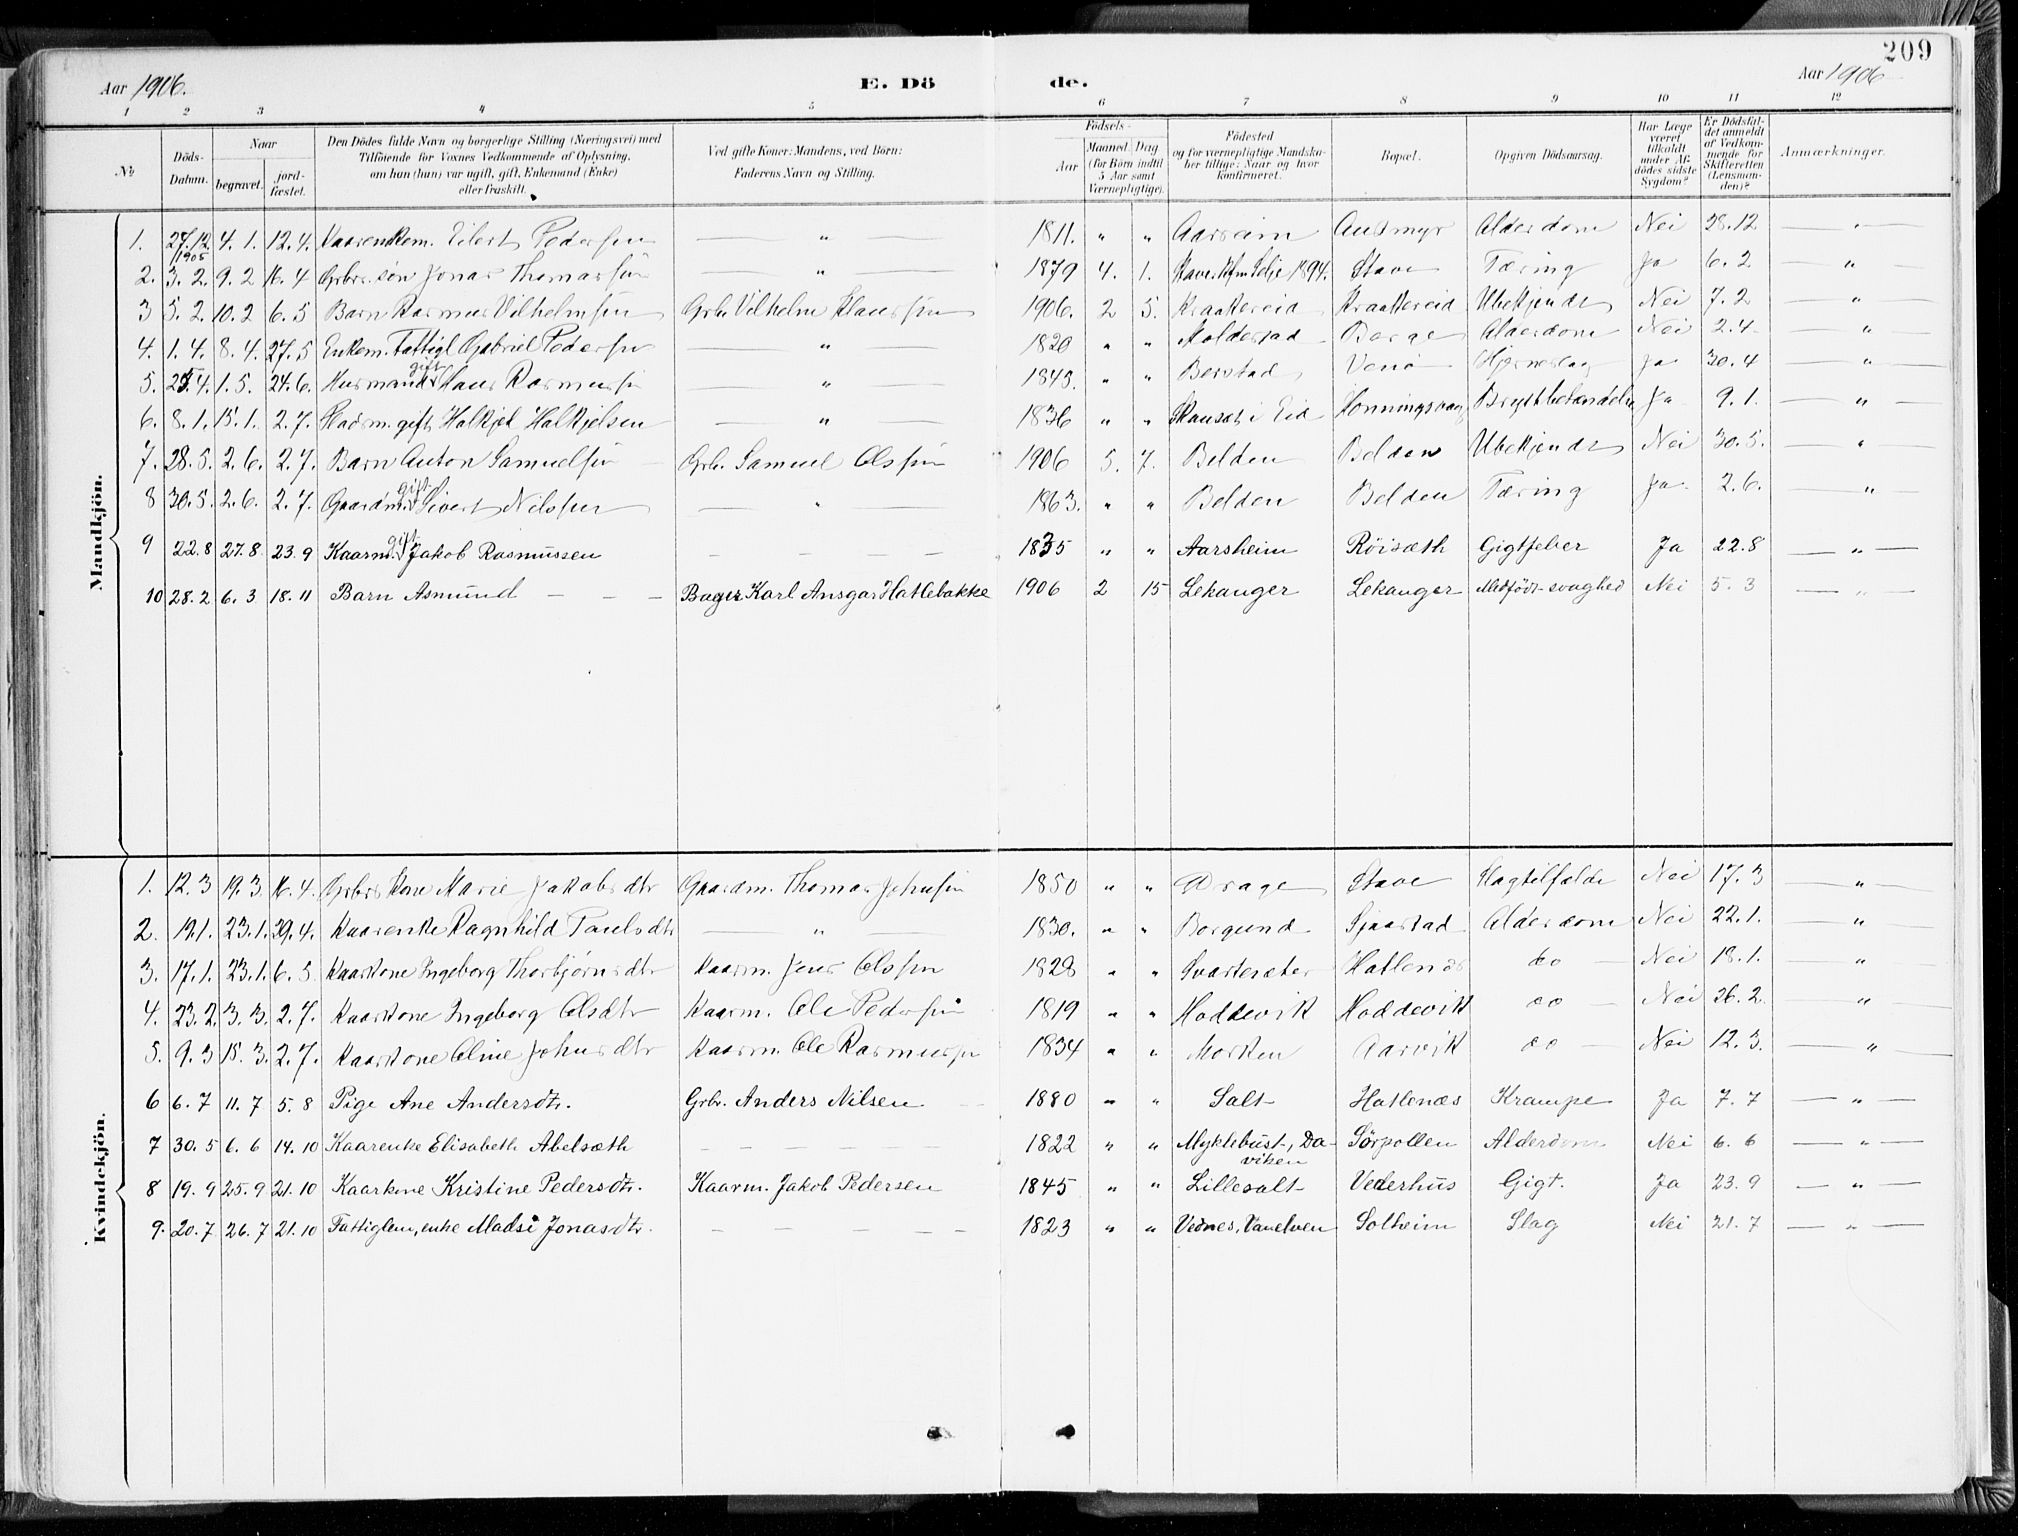 209
Aar 1906. E. Dö de. Aar 1906
1 2 3 4 5 6 7 8 9 10 11 12
№
Döds-Datum.
Naar
begravet.
jord-fæstet.
Den Dödes fulde Navn og borgerlige Stilling (Næringsvei) med
Tilföiende for Voxnes Vedkommende af Oplysning,
om han (hun) var ugift, gift, Enkemand (Enke)
eller fraskilt.
Ved gifte Koner: Mandens, ved Börn:
Faderens Navn og Stilling.
Födsels-
Aar
Maaned. Dag
(for Börn indtil
5 Aar samt
Værnepligtige).
Födested
og for værnepligtige Mandska-
ber tillige: Naar og hvor
konfirmeret.
Bopæl.
Opgiven Dödsaarsag.
Har Læge
været
tilkaldt
under Af-
dödes sidste
Sygdom?
Er Dödsfal-
det anmeldt
af Vedkom-
mende for
Skifteretten
(Lensman-
den)?
Anmærkninger.
Mandkjön.
1. 27.12. 1905 4.1. 12.4. Kaarenkem. Eilert Pedersen — " — 1811. " " Aarseim Audmyr Alderdom Nei 28.12 — " —
2. 3.2. 9.2 16.4 Grbr. søn Jonas Thomassøn — " — 1879 4. 1. Stave. Kfm. Selje 1894. Stave Tæring Ja 6.2 — " —
3 5.2. 10.2 6.5 Barn Rasmus Vilhelmsen Grbr. Vilhelm Klaussen 1906. 2 5. Kraakereid Kraakereid Ubekjendt Nei 7.2 — " —
4. 1.4. 8.4. 27.5 Enkem. Fattigl. Gabriel Pedersen — " — 1820 " " Moldestad Berge Alderdom Nei 2.4. — " —
5. 25.4. 1.5. 24.6. Husmand gift Hans Rasmussen — " — 1845. " " Berstad Venø Hjerneslag Ja 30.4 — " —
6. 8.1. 15.1. 2.7. Pladsm. gift Halkjel Halkjelsen — " — 1836 " " i Eid Honningsvaag Brystbetændelse Ja 9.1. — " —
7. 28.5. 2.6. 2.7. Barn Anton Samuelsen Grbr. Samuel Olssen 1906 5. 7. Belden Belden Ubekjendt Nei 30.5. — " —
8 30.5. 2.6. 2.7. Gaardm. gift Sivert Nilssen — " — 1863. " " Belden Belden Tæring Ja. 2.6. — " —
9 22.8 27.8. 23.9 Kaarm. gift Jakob Rasmussen — — — — 1835 " " Aarsheim Röisæth Gigtfeber Ja 22.8 — " —
10 28.2 6.3 18.11 Barn Asmund — — — Bager Karl Ansgar Hatlebakke 1906 2 15 Lekanger Lekanger Medfödt svaghed Nei 5.3 — " —
Kvindekjön.
1. 12.3 19.3. 16.4. Grbrs. Kone Marie Jakobsdtr Gaardm. Thomas Johnsen 1850 " " Drage Stave Slagtilfælde Nei 17.3 — " —
2. 19.1. 23.1. 29.4. Kaarenke Ragnhild Paulsdtr — " — 1830. " " Borgund Sjaastad Alderdom Nei 22.1. — " —
3. 17.1. 23.1. 6.5 Kaarkone Ingeborg Thorbjørnsdtr Kaarm. Jens Olssen 1828 " " Svartesæter Hatlenæs do — Nei 18.1. — " —
4. 23.2. 3.3. 2.7. Kaarkone Ingeborg Olsdtr Kaarm. Ole Pedersen 1819 " " Hoddevik Hoddevik do — Nei 26.2. — " —
5. 9.3 15.3. 2.7. Kaarkone Oline Johnsdtr Kaarm. Ole Rasmussen 1834 " " Morken Aarvik do — Nei 12.3. — " —
6 6.7 11.7 5.8 Pige Ane Andersdtr. Grbr. Anders Nilsen — 1880 " " Salt Hatlenæs Krampe Ja 7.7 — " —
7 30.5 6.6 14.10 Kaarenke Elisabeth Abelsæth — — — — 1822 " " Myklebust, Daviken Sörpollen Alderdom Nei 6.6 — " —
8 19.9 25.9 21.10 Kaarkone Kristine Pedersdtr. Kaarm. Jakob Pedersen 1845 " " Lillesalt Vederhus Gigt. Ja 23.9 — " —
9. 20.7 26.7 21.10 Fattiglem, enke Madsi Jonasdtr. — — — — 1823 " " Vednes, Vanelven Solheim Slag Nei 21.7 — " —